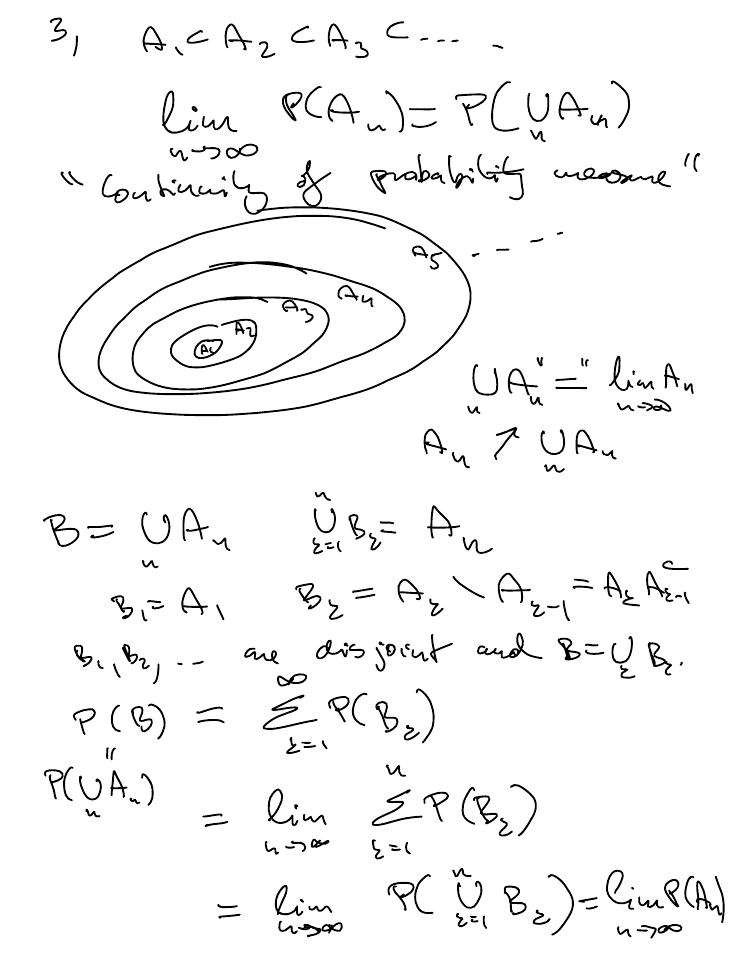 3, A₁ ⊂ A₂ ⊂ A₃ ⊂ --- .
lim_{n→∞} P(Aₙ) = P(⋃_n Aₙ)
"Continuity of probability measure"
A₁ A₂ A₃ A₄ A₅ - - - -
⋃_n Aₙ "=" lim_{n→∞} Aₙ
Aₙ ↗ ⋃_n Aₙ
B = ⋃_n Aₙ ⋃_{k=1}^n B_k = Aₙ
B₁ = A₁ B_k = A_k \ A_{k-1} = A_k A_{k-1}^c
B₁, B₂, -- are disjoint and B = ⋃_k B_k.
P(B) = ∑_{k=1}^∞ P(B_k)
"
P(⋃_n Aₙ)
= lim_{n→∞} ∑_{k=1}^n P(B_k)
= lim_{n→∞} P(⋃_{k=1}^n B_k) = lim_{n→∞} P(Aₙ)